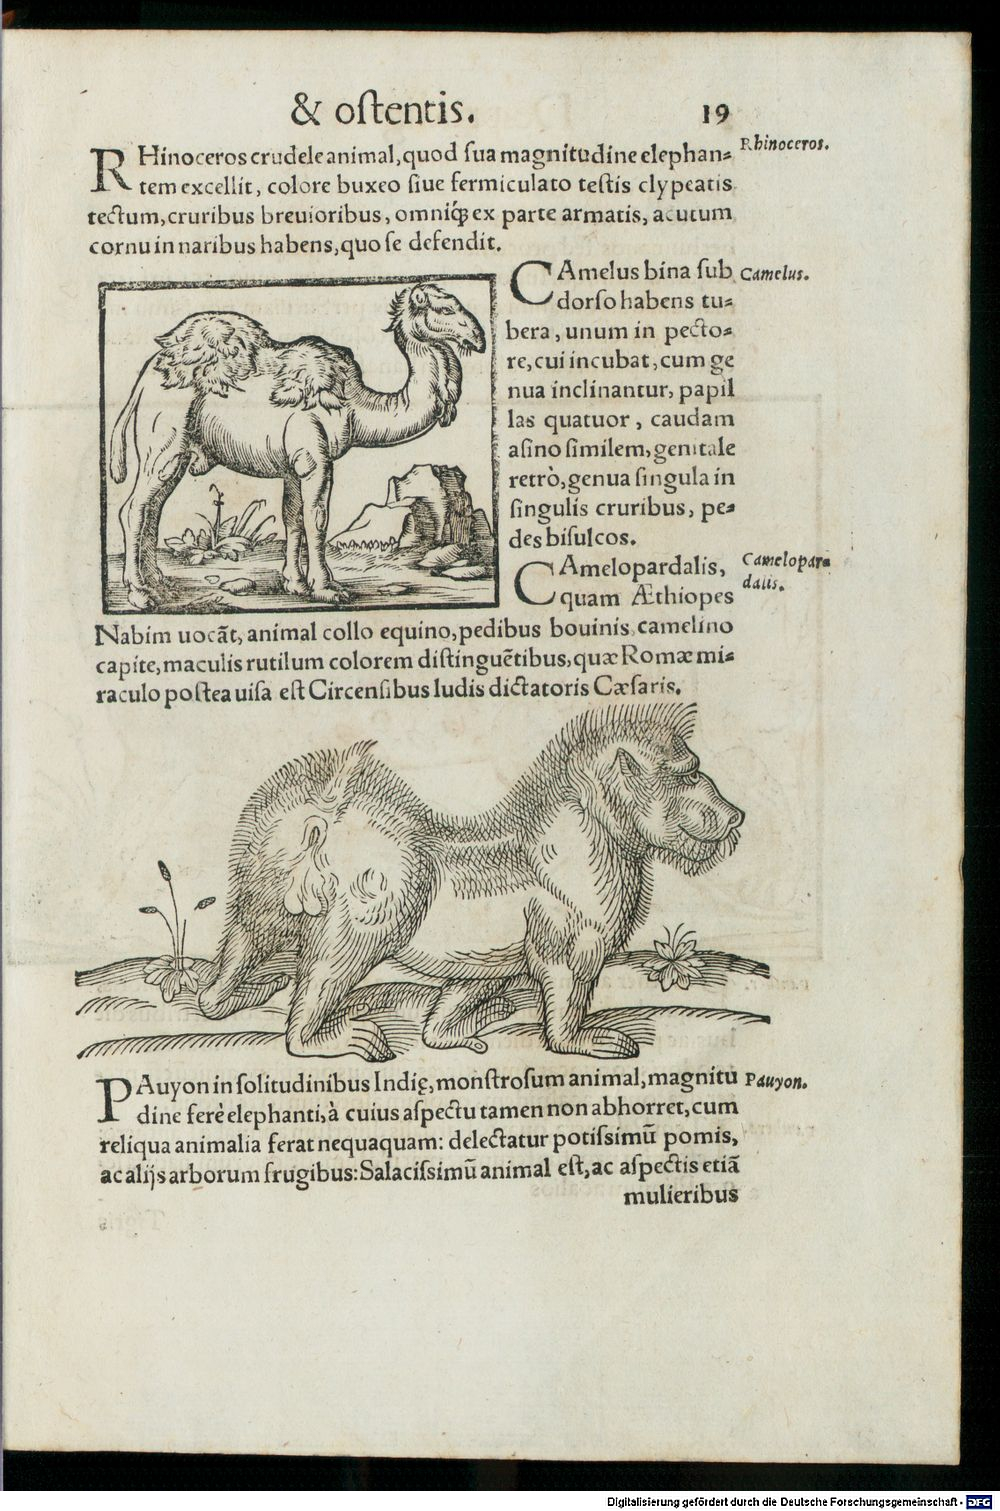 & oſtentis. 19
RHinoceros crudele animal, quod ſua magnitudine elephan-
tem excellit, colore buxeo ſiue fermiculato teſtis clypeatis
tectum, cruribus breuioribus, omniq́ꝫ ex parte armatis, acutum
cornu in naribus habens, quo ſe defendit.
Rhinoceros.
CAmelus bina ſub
dorſo habens tu-
bera, unum in pecto-
re, cui incubat, cum ge
nua inclinantur, papil
las quatuor, caudam
aſino ſimilem, genitale
retrò, genua ſingula in
ſingulis cruribus, pe-
des biſulcos.
Camelus.
CAmelopardalis,
quam Æthiopes
Nabim uocãt, animal collo equino, pedibus bouinis, camelino
capite, maculis rutilum colorem diſtinguẽtibus, quæ Romæ mi-
raculo poſtea uiſa eſt Circenſibus ludis dictatoris Cæſaris.
Camelopar-
dalis.
PAuyon in ſolitudinibus Indię, monſtroſum animal, magnitu
dine ferè elephanti, à cuius aſpectu tamen non abhorret, cum
reliqua animalia ferat nequaquam: delectatur potiſsimũ pomis,
ac alijs arborum frugibus: Salaciſsimũ animal eſt, ac aſpectis etiã
mulieribus
Pauyon.
Digitalisierung gefördert durch die Deutsche Forschungsgemeinschaft - DFG